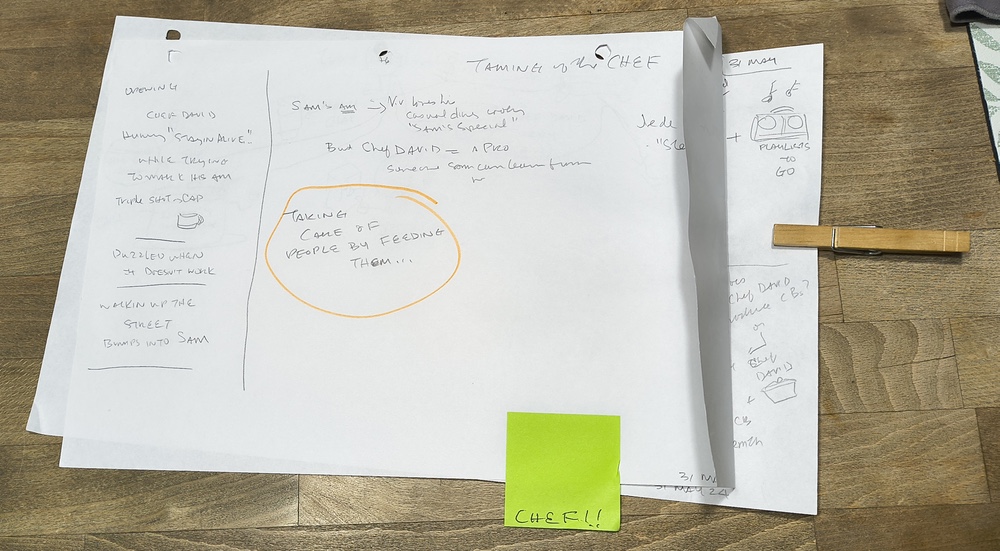 TAMING of the CHEF
OPENING
CHEF DAVID
Humming "STAYIN ALIVE"
WHILE TRYING
TO MAKE HIS AM
TRIPLE SHOT CAP
PUZZLED WHEN
IT DOESN'T WORK
WALKIN UP THE
STREET
BUMPS INTO SAM
SAM'S AM → Viv loves her
casual dining cooking
"SAM'S Special"
But Chef DAVID = A PRO
someone Sam can learn from
TAKING
CARE OF
PEOPLE BY FEEDING
THEM...
31 MAY
Jede
+
PLAYLISTS
TO
GO
Chef DAVID
CBs?
or
+ Chef
DAVID
+
CB
31 MA
31 MAY 24
CHEF!!